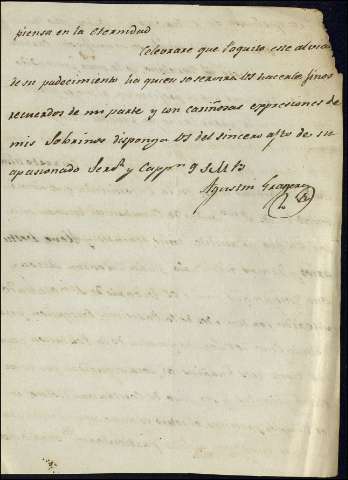 piensa en la eternidad
Celevrare que Paquito este aliviado
de su padecimiento ha quien se servira Us hacerles finos
recuerdos de mi parte y con cariñosas expresiones de
mis Sobrinos disponga Us del sincero afto de su
apasionado Serdr y Cappn q S M B
Agustin